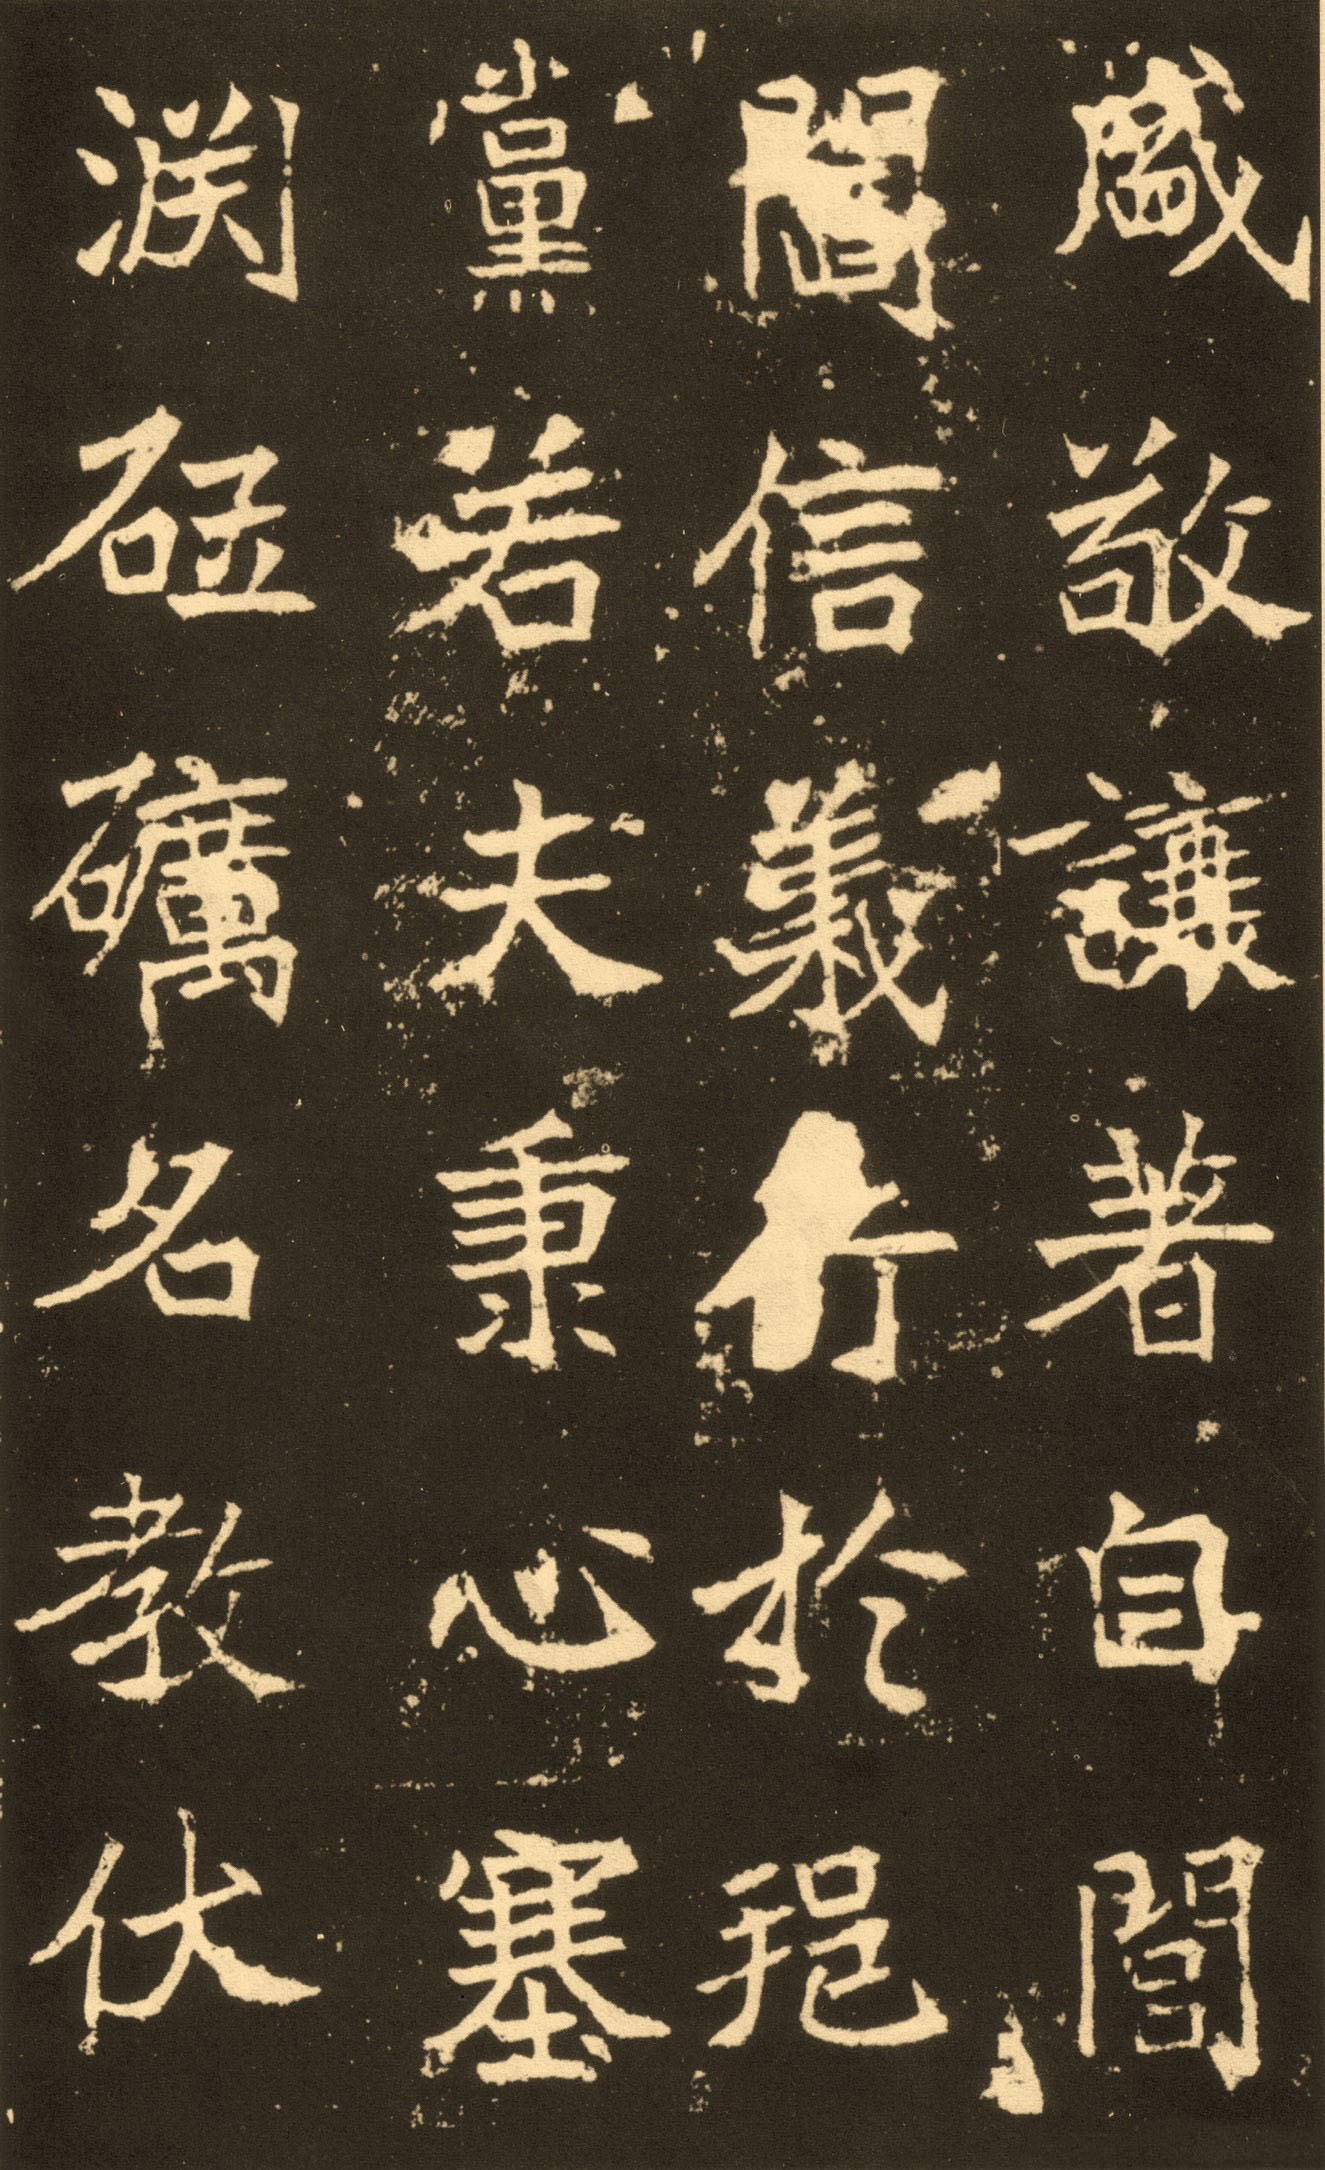 臧敬讓著自閭
閻信義行於鄉
黨若夫秉心塞
淵砥礪名教伏